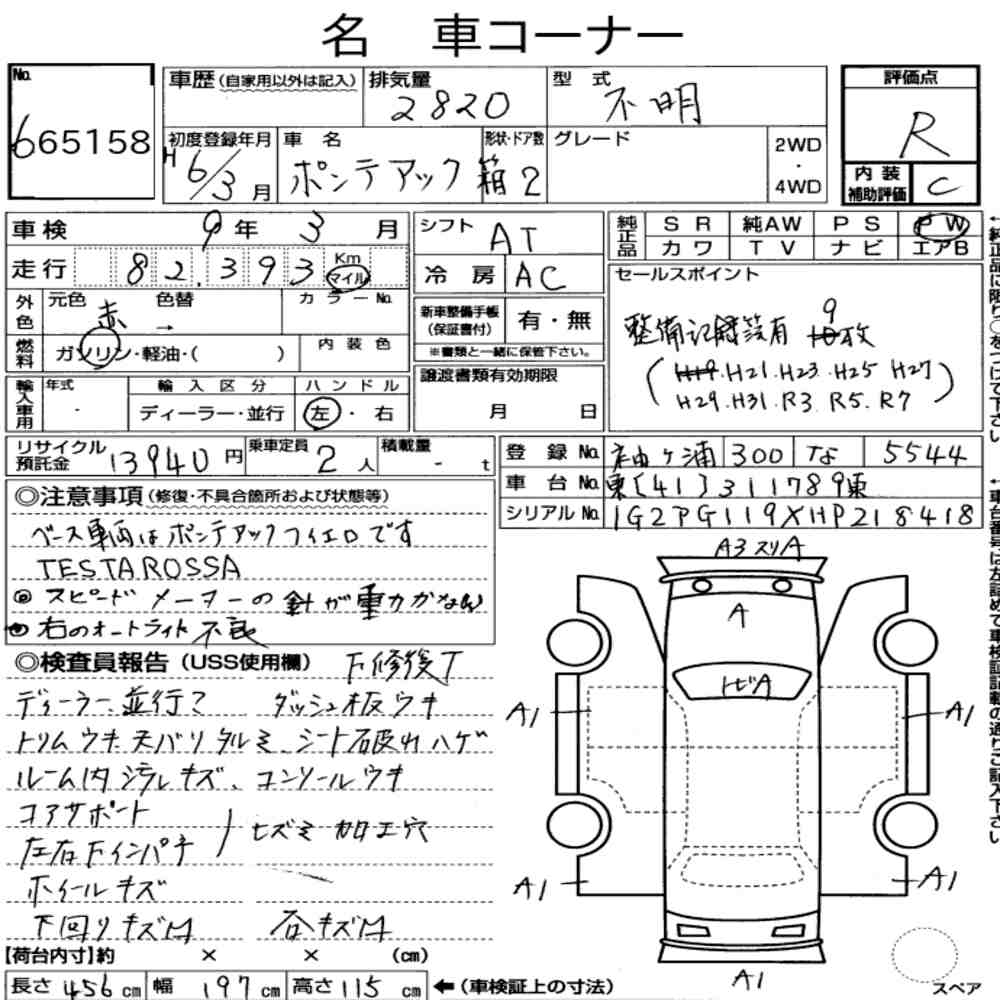 名 車コーナー
No. 665158
車歴(自家用以外は記入) 排気量 2820 型式 不明 評価点 R
初度登録年月 H6/3月 車名 ポンテアック 形状・ドア数 箱2 グレード 2WD・4WD 内装補助評価 C
車検 9年 3月 シフト AT 純正品 SR 純AW PS PW
カワ TV ナビ エアB
走行 82,393 Km マイル 冷房 AC セールスポイント
外色 元色 赤 色替 → カラーNo. 新車整備手帳(保証書付) 有・無
整備記録簿有 9枚
燃料 ガソリン・軽油・( ) 内装色 ※書類と一緒に保管下さい。
(H19.H21.H23.H25 H27)
H29.H31.R3.R5.R7
輸入車用 年式 - 輸入区分 ディーラー・並行 ハンドル 左・右 譲渡書類有効期限 月 日
リサイクル預託金 13940円 乗車定員 2人 積載量 - t
登録No. 袖ヶ浦 300 な 5544
車台No. 東[41]311789東
シリアルNo. 1G2PG119XHP218418
◎注意事項(修復・不具合箇所および状態等)
ベース車両はポンテアックフィエロです
TESTAROSSA
◎スピードメーターの針が重力がなん
●右のオートライト不良
◎検査員報告(USS使用欄) 下修後丁
ディーラー、並行? ダッシュ板ウキ
トリムウキ 天バリタルミ、シート破れハゲ
ルーム内汚レキズ、コンソールウキ
コアサポート
左右下インパチ ヒズミ加工穴
ホイールキズ
下回りキズサ 各キズサ
【荷台内寸】約 × × (cm)
長さ 456cm 幅 197cm 高さ 115cm ←(車検証上の寸法)
A3スリA
A
トビA
A1
A1
A1
A1
A1
スペア
←純正品に限り○をつけて下さい
←車台番号は左詰めで車検証記載の通りご記入下さい